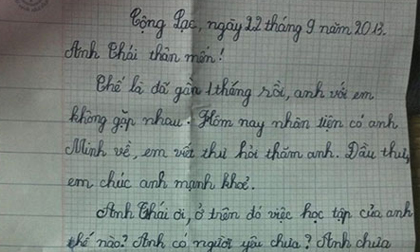 Cộng Lạc, ngày 22 tháng 9 năm 2013.
Anh Thái thân mến!
Thế là đã gần 1 tháng rồi, anh với em
không gặp nhau. Hôm nay nhân tiện có anh
Minh về, em viết thư hỏi thăm anh. Đầu thư,
em chúc anh mạnh khoẻ.
Anh Thái ơi, ở trên đó việc học tập của anh
thế nào? Anh có người yêu chưa? Anh chưa